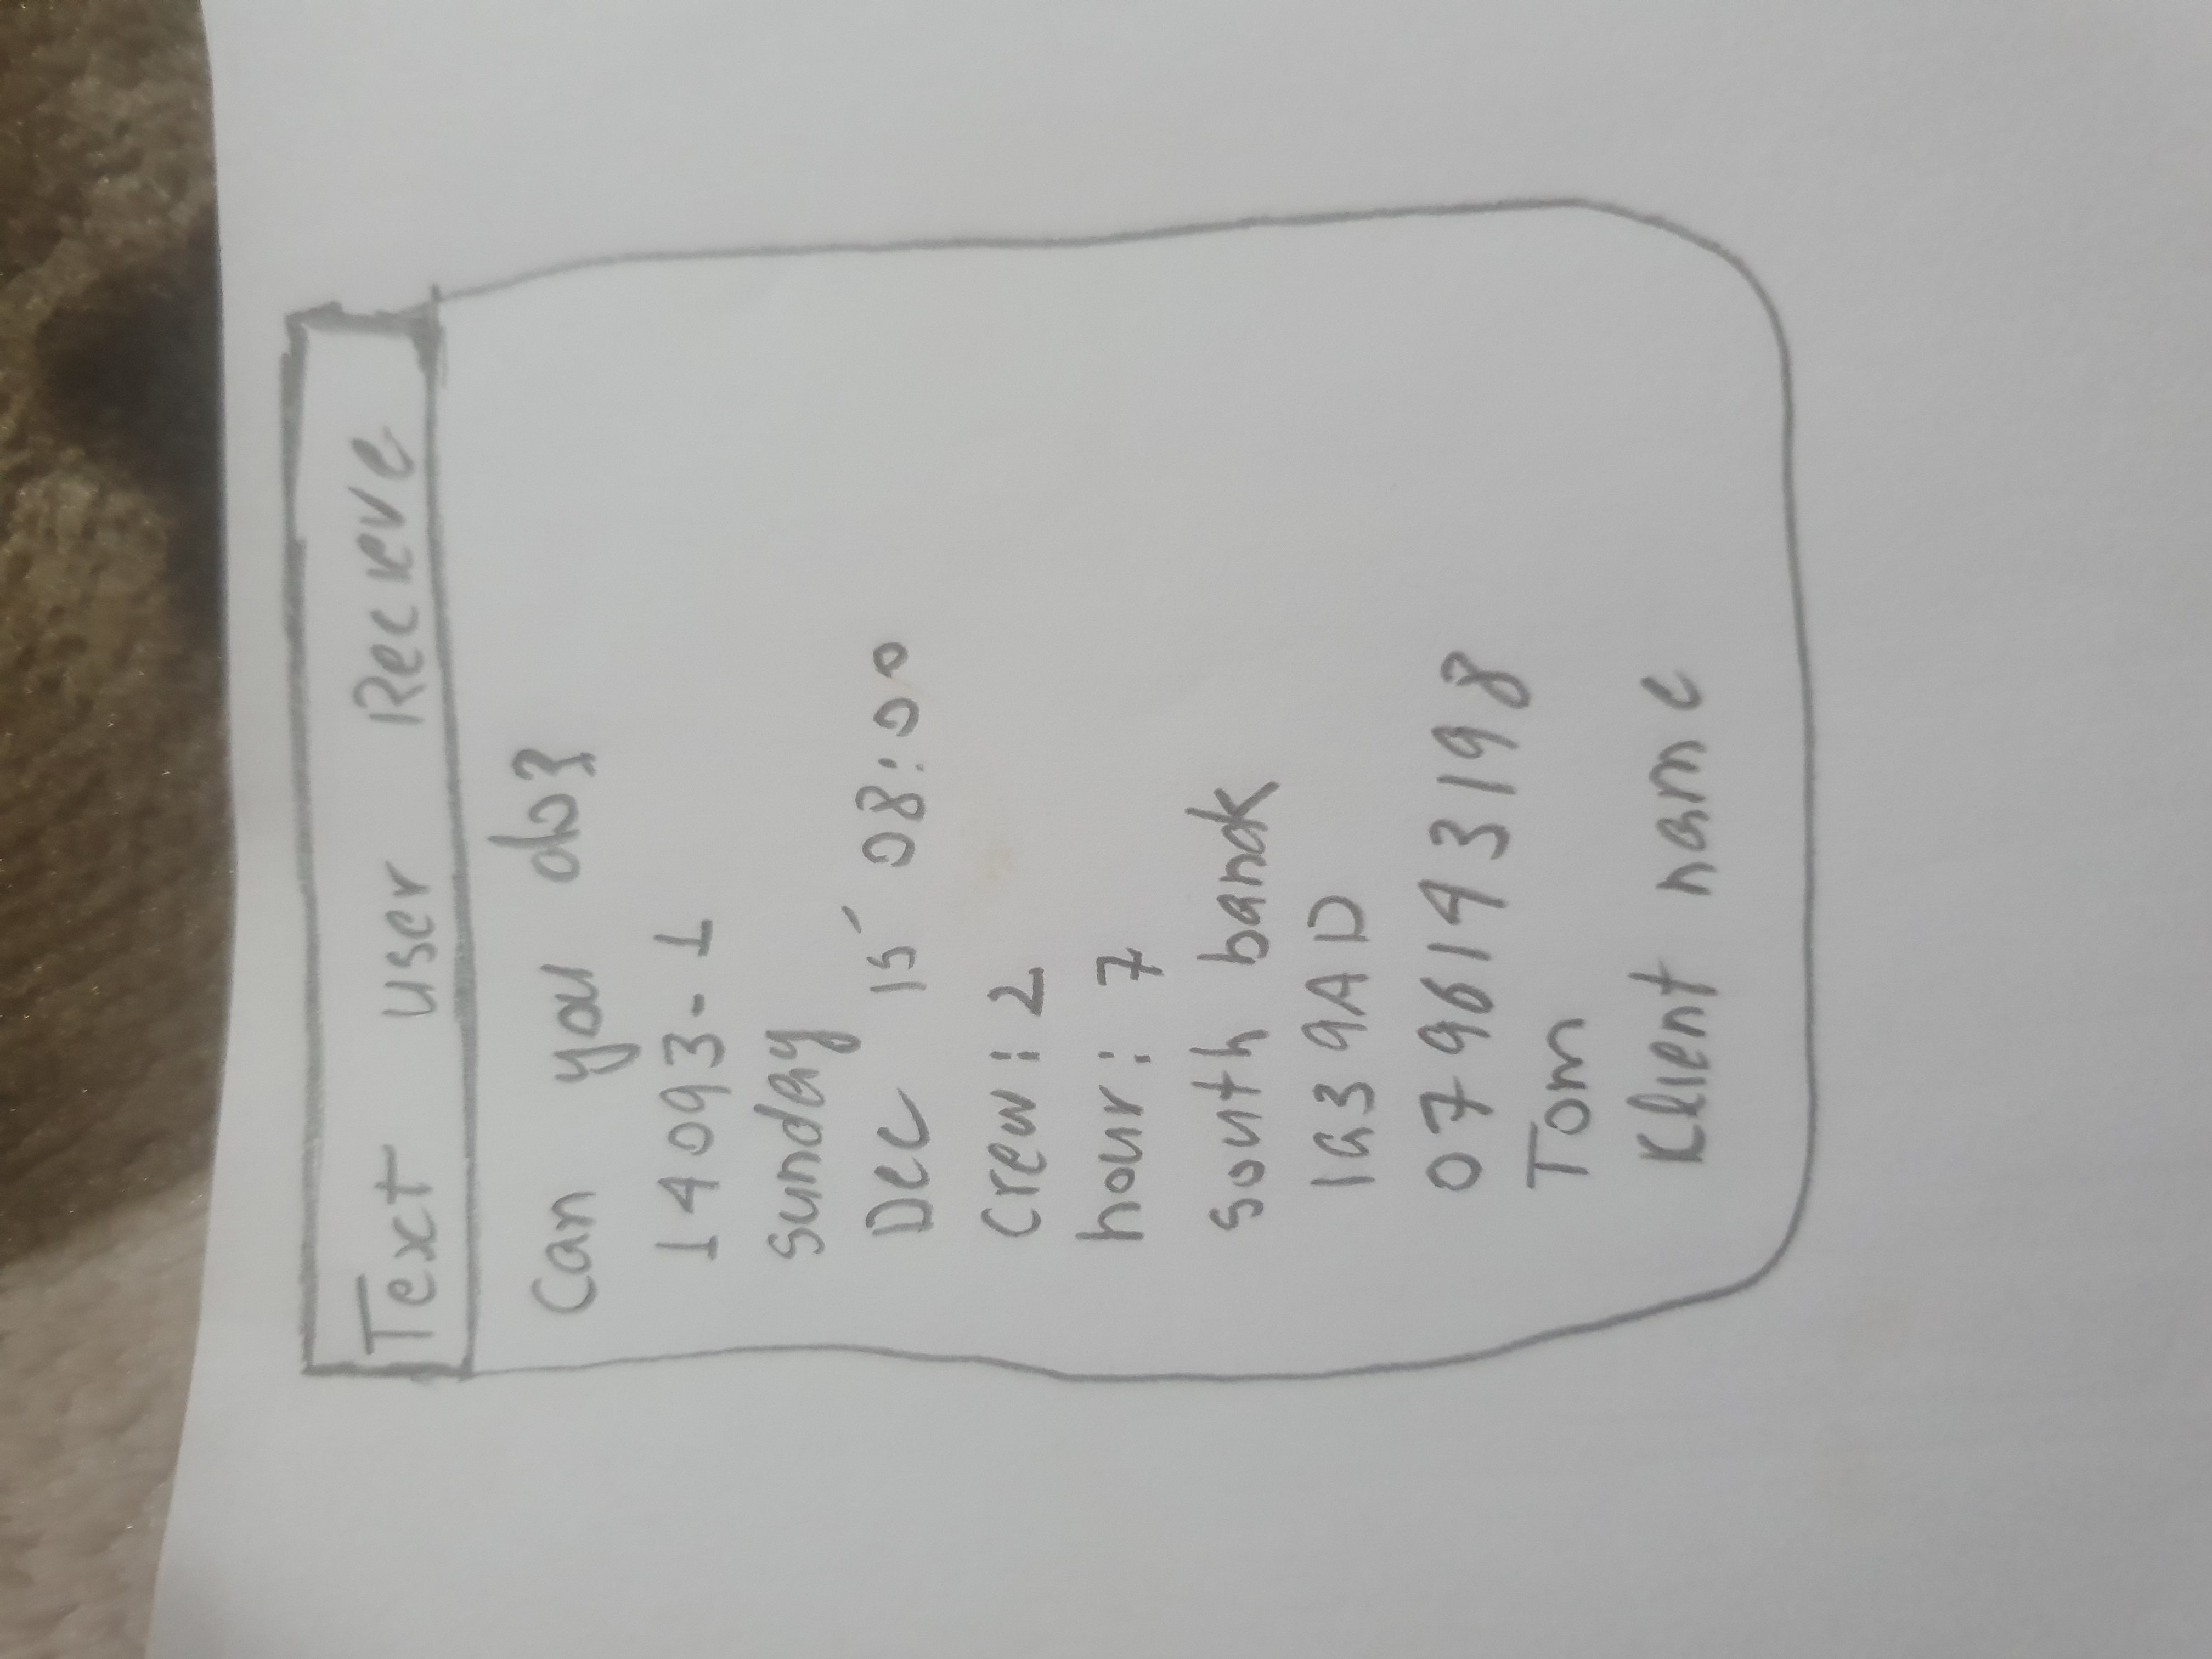 Text user Recieve
Can you do?
14093-1
sunday
Dec 15 08:00
crew: 2
hour: 7
south bank
1G3 9AD
0796143198
Tom
Klient name